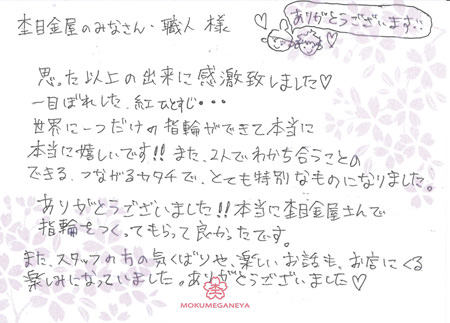 杢目金屋のみなさん・職人 様
ありがとうございます!!
思った以上の出来に感激致しました♡
一目ぼれした、紅ひとすじ・・・
世界に一つだけの指輪ができて本当に
本当に嬉しいです!! また、2人でわかち合うことの
できる、つながるカタチで、とても特別なものになりました。
ありがとうございました!! 本当に杢目金屋さんで
指輪をつくってもらって良かったです。
また、スタッフの方の気くばりや、楽しいお話も、お店にくる
楽しみになっていました。ありがとうございました♡
MOKUMEGANEYA